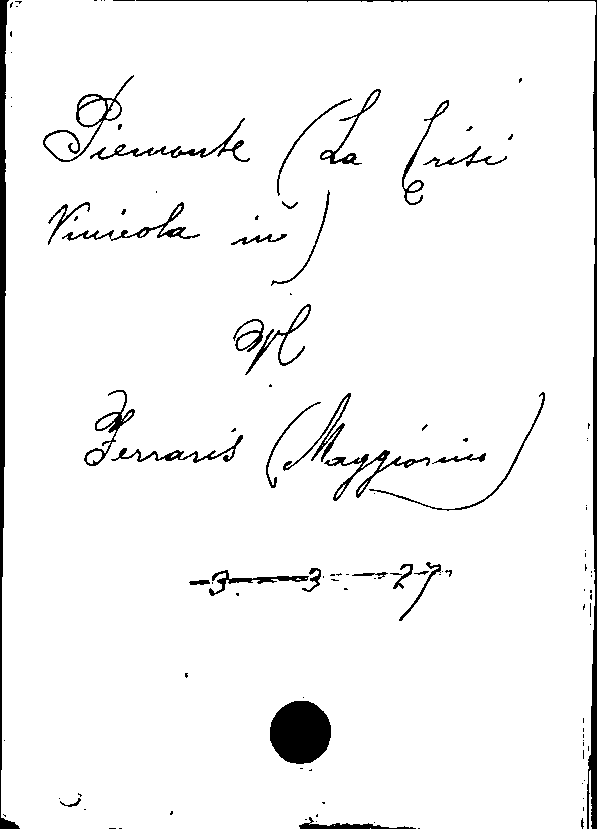 Piemonte (La Crisi
Vinicola in)
V
Ferraris (Maggiorino)
3 3 27